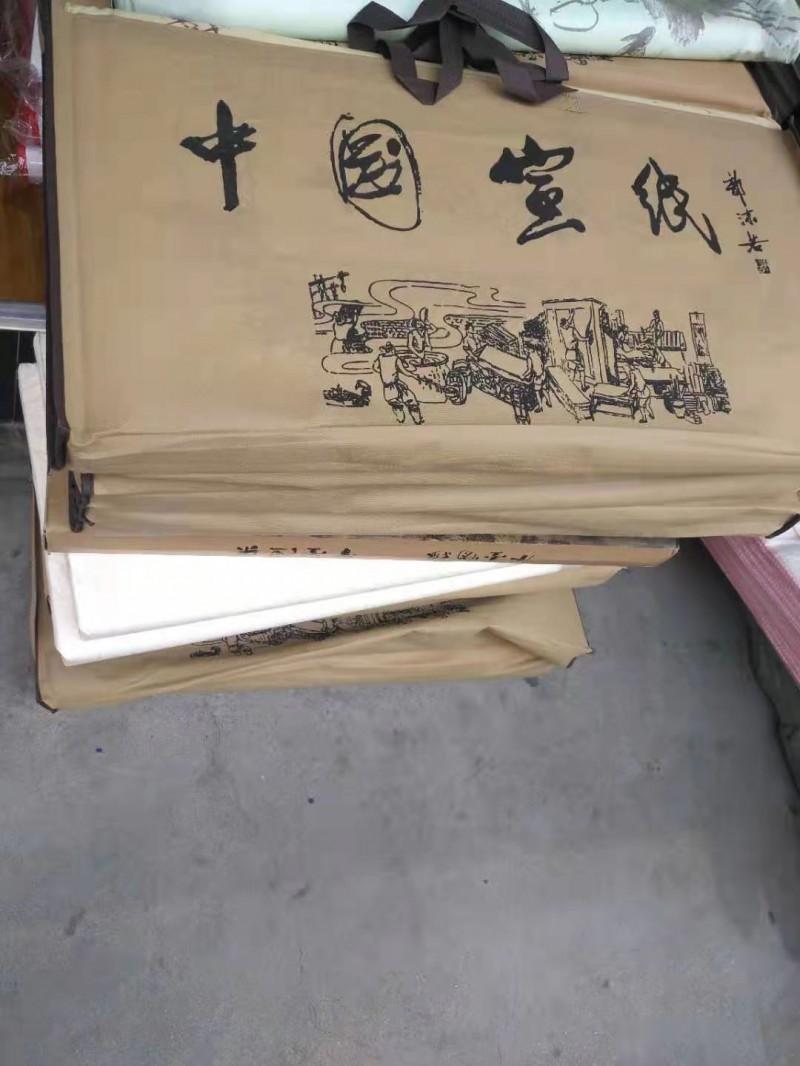 中国宣纸
郭沫若